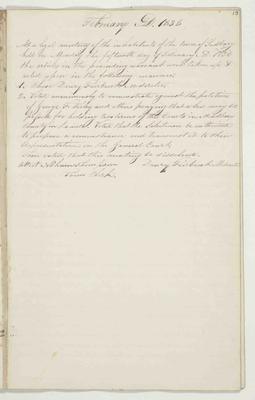 19
February A.D. 1836
At a legal meeting of the inhabitants of the town of Sudbury
held on Monday the fifteenth day of February A. D. 1836
the articles in the preceding warrant were taken up &
acted upon in the following manner
1. Chose Drury Fairbank moderator
2. Voted unanimously to remonstrate against the petition
of and others praying that
for holding terms of the Courts in
County in Voted that the Selectmen be
to prepare a remonstrance and transmit it to their
Representative in the General Court
then voted that this meeting be dissolved.
Attest Drury Fairbank Moderator
Town Clerk